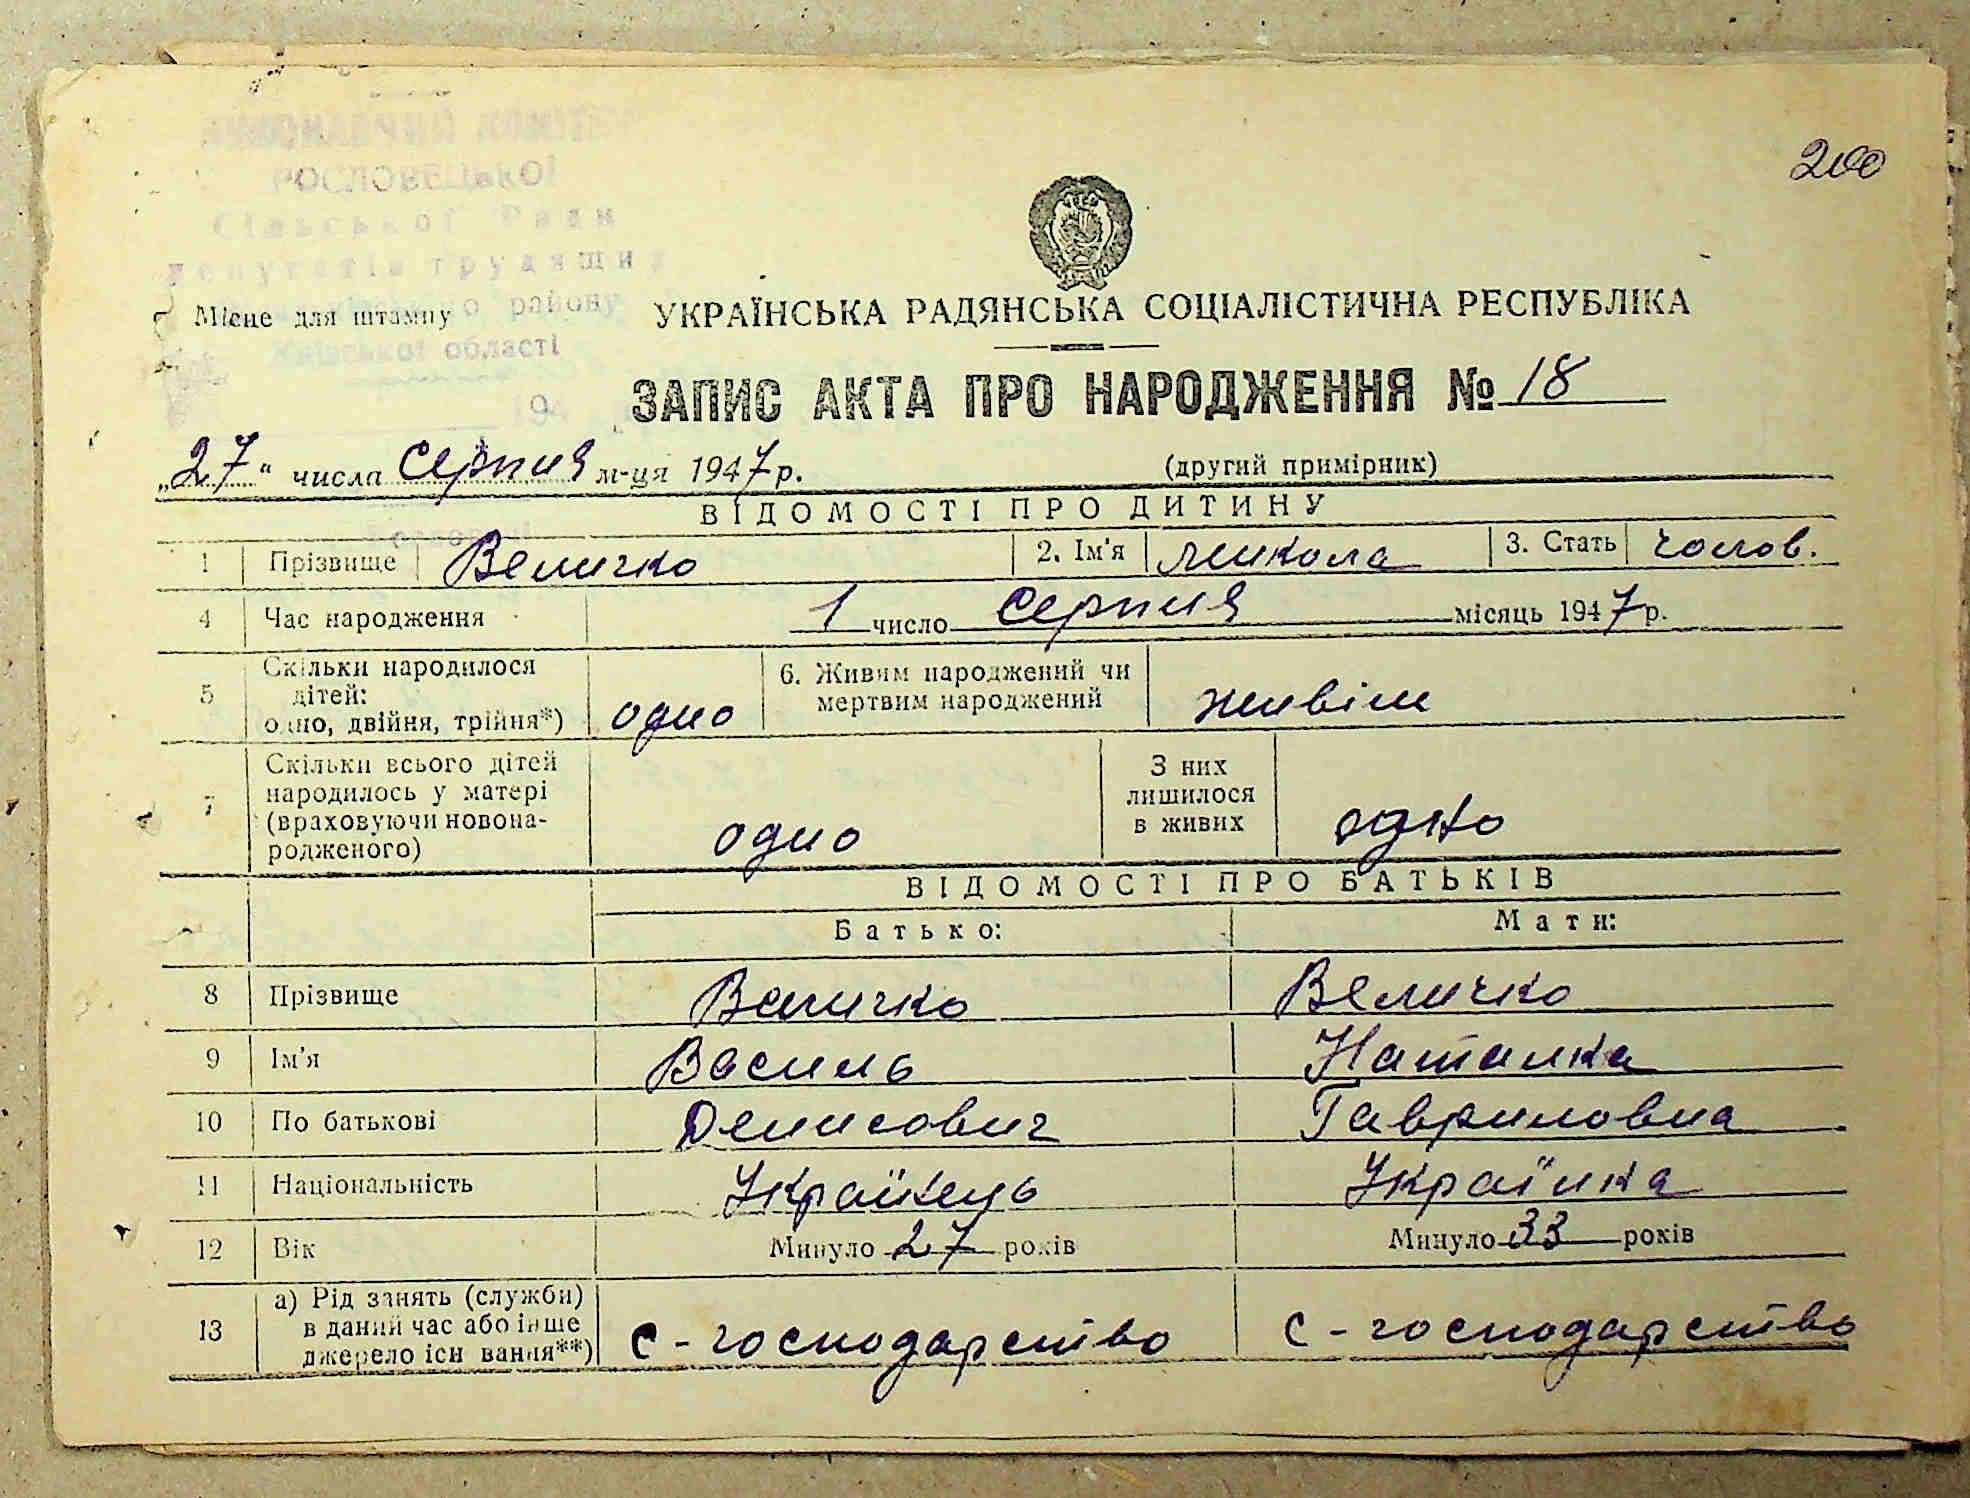 200
ВИКОНАВЧИЙ КОМІТЕ
РОСЛОВЕЦЬКОЇ
Сільської Ради
депутатів трудящих
району
Місце для штампу
Київської області
194
УКРАЇНСЬКА РАДЯНСЬКА СОЦІАЛІСТИЧНА РЕСПУБЛІКА
ЗАПИС АКТА ПРО НАРОДЖЕННЯ № 18
„27“ числа Серпня м-ця 1947 р. (другий примірник)
ВІДОМОСТІ ПРО ДИТИНУ
1 Прізвище Величко 2. Ім'я Микола 3. Стать чолов.
4 Час народження 1 число Серпня місяць 1947 р.
5 Скільки народилося дітей: одно, двійня, трійня*) одно 6. Живим народжений чи мертвим народжений живім
7 Скільки всього дітей народилось у матері (враховуючи новонародженого) одно З них лишилося в живих одно
ВІДОМОСТІ ПРО БАТЬКІВ
Батько: Мати:
8 Прізвище Величко Величко
9 Ім'я Василь Наталка
10 По батькові Денисович Гавриловна
11 Національність Українець Українка
12 Вік Минуло 27 років Минуло 33 років
13 а) Рід занять (служби) в даний час або інше джерело існування**) с-господарство с-господарство